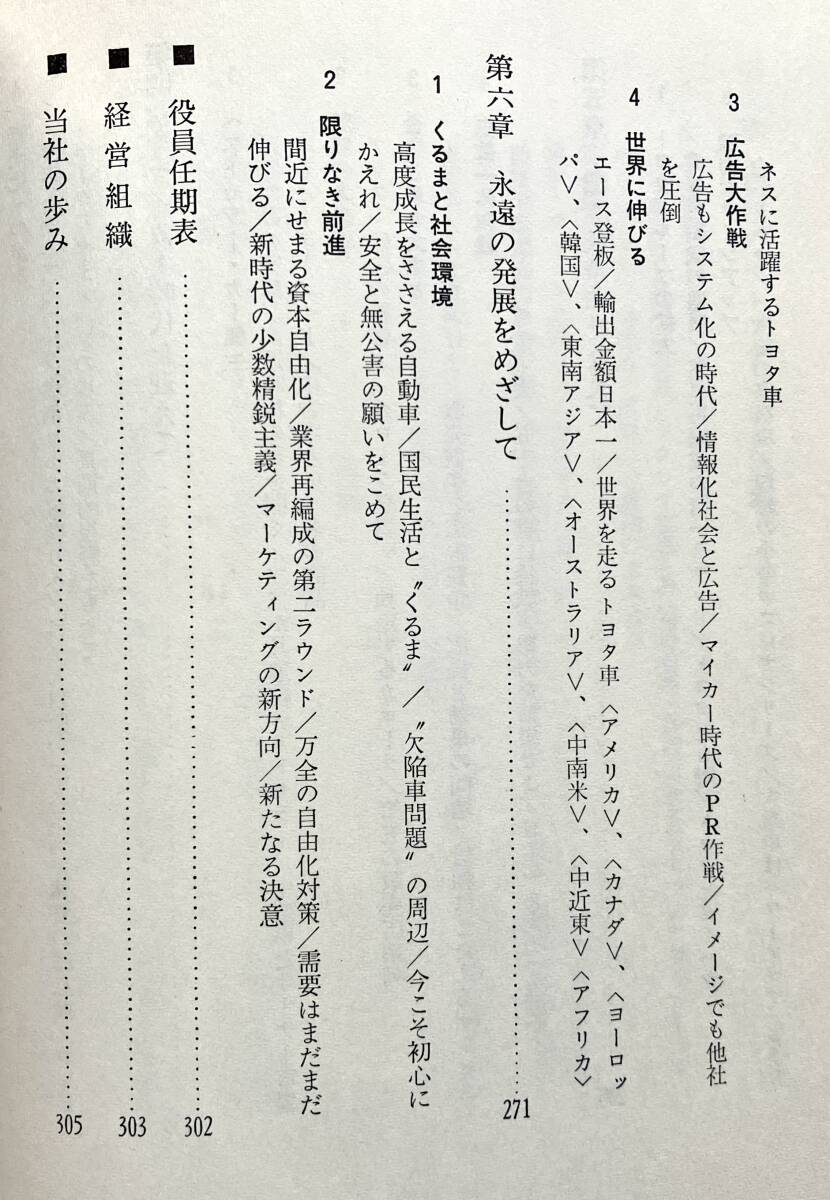 ネスに活躍するトヨタ車
3 広告大作戦
広告もシステム化の時代／情報化社会と広告／マイカー時代のPR作戦／イメージでも他社
を圧倒
4 世界に伸びる
エース登板／輸出金額日本一／世界を走るトヨタ車〈アメリカ〉、〈カナダ〉、〈ヨーロッ
パ〉、〈韓国〉、〈東南アジア〉、〈オーストラリア〉、〈中南米〉、〈中近東〉〈アフリカ〉
第六章 永遠の発展をめざして……………………271
1 くるまと社会環境
高度成長をささえる自動車／国民生活と〝くるま〟／〝欠陥車問題〟の周辺／今こそ初心に
かえれ／安全と無公害の願いをこめて
2 限りなき前進
間近にせまる資本自由化／業界再編成の第二ラウンド／万全の自由化対策／需要はまだまだ
伸びる／新時代の少数精鋭主義／マーケティングの新方向／新たなる決意
■ 役員任期表……………………302
■ 経営組織……………………303
■ 当社の歩み……………………305